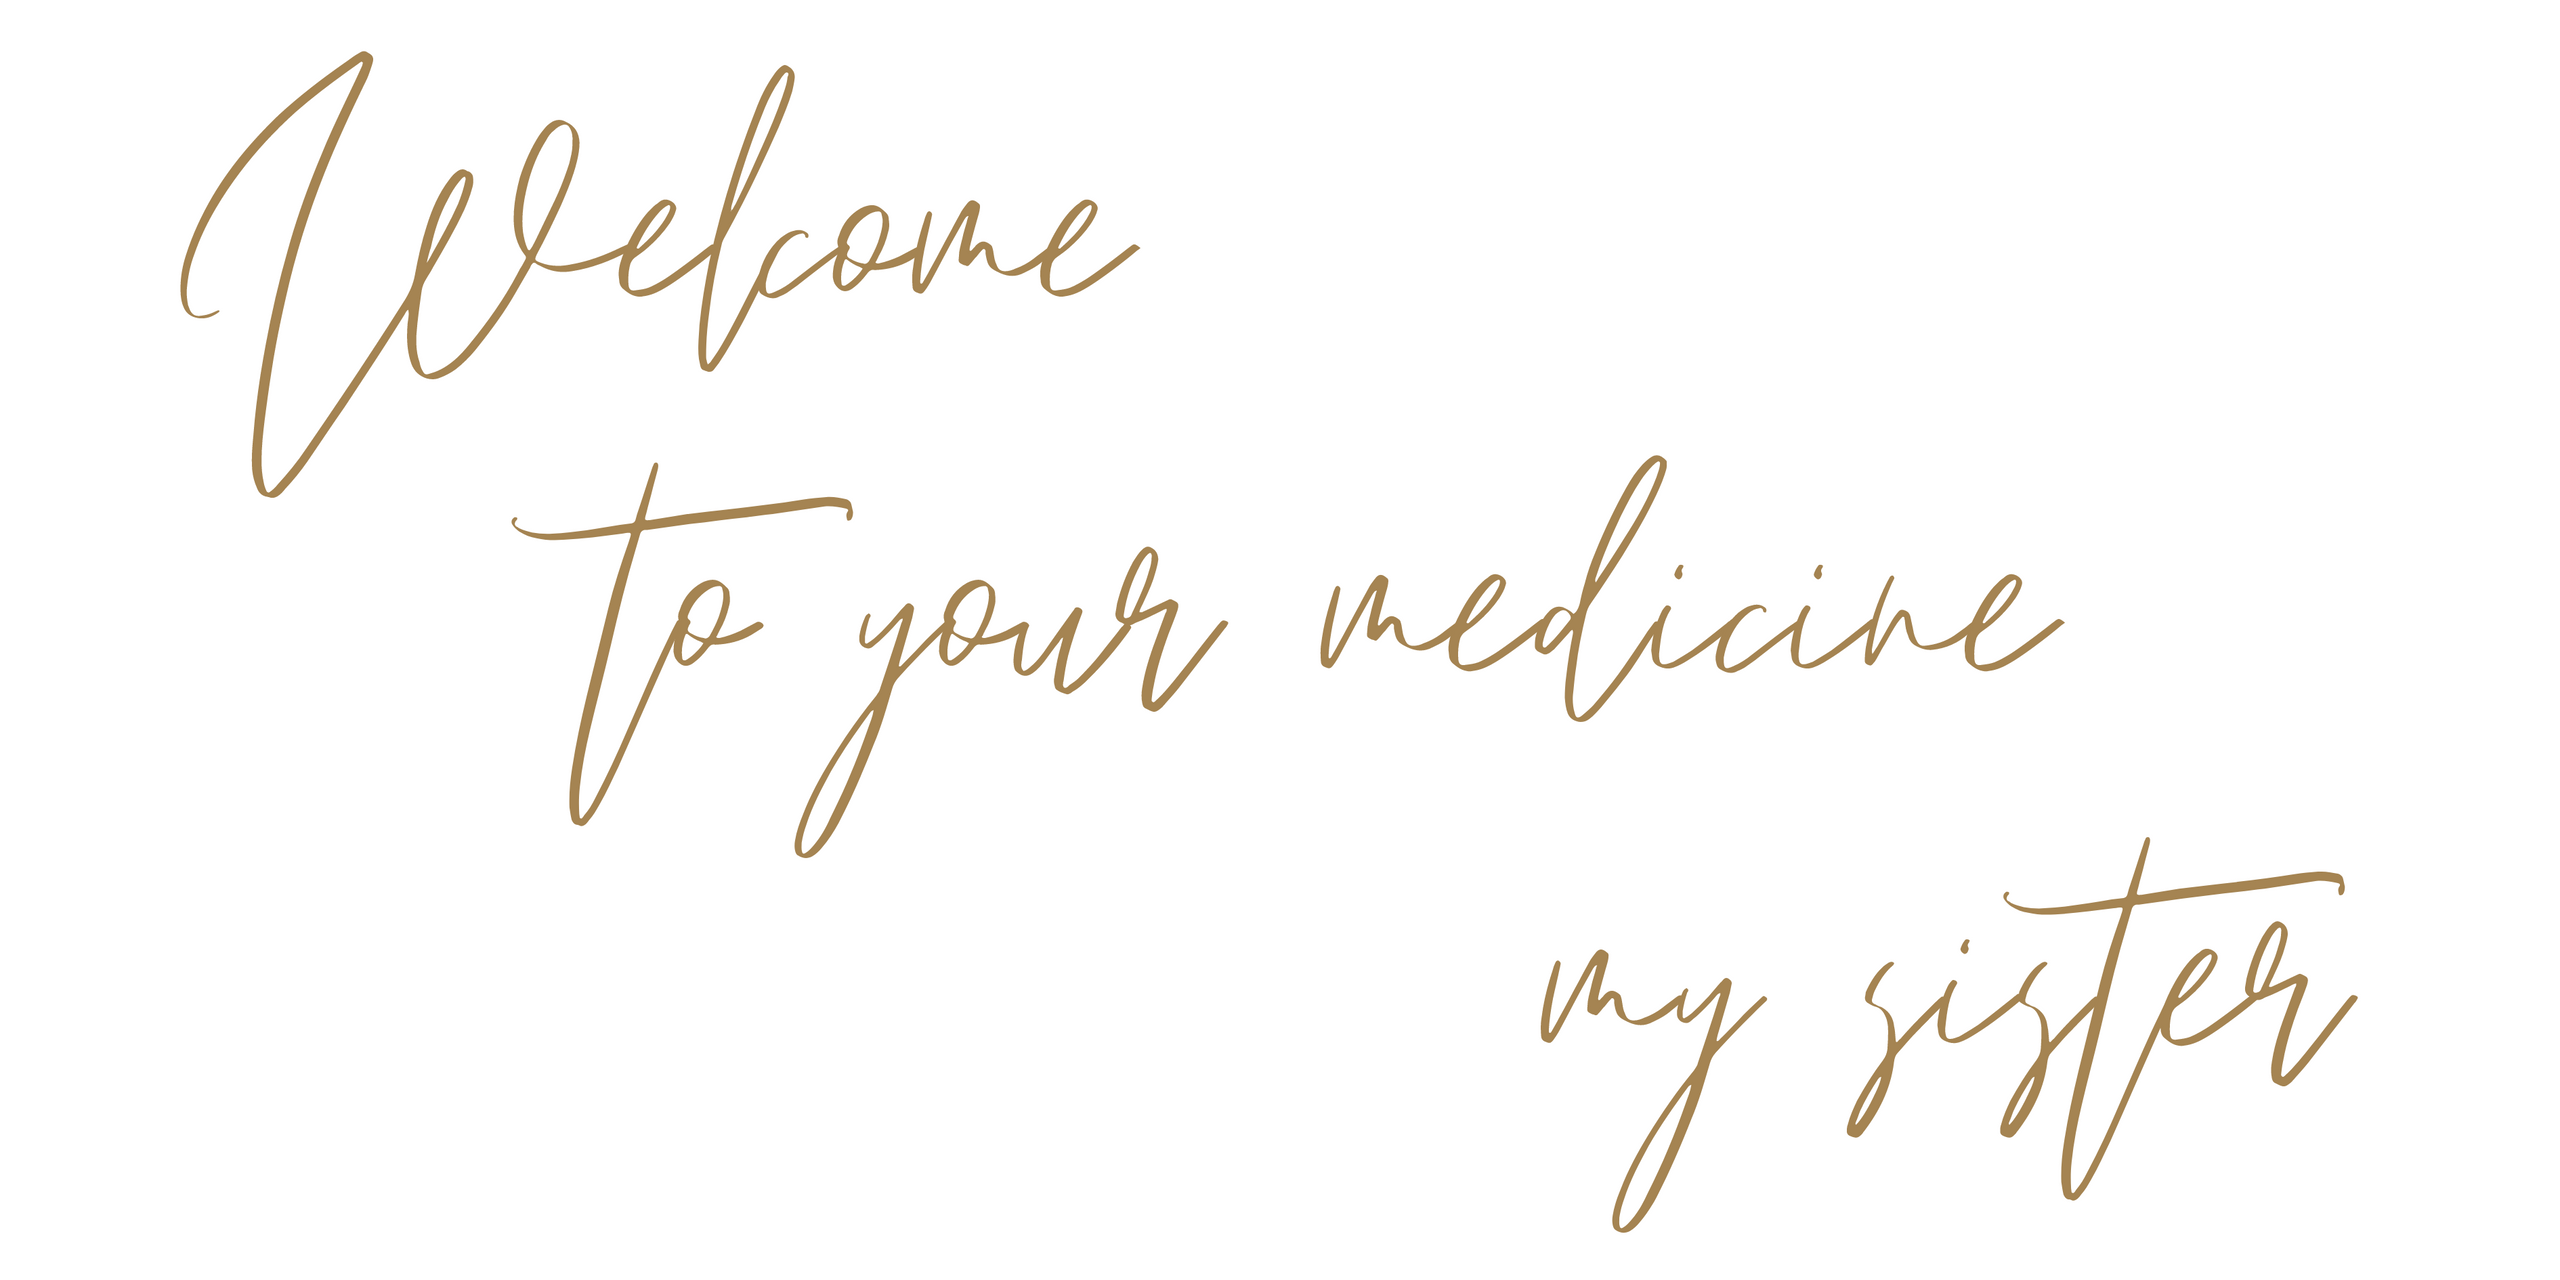 Welcome
to your medicine
my sister